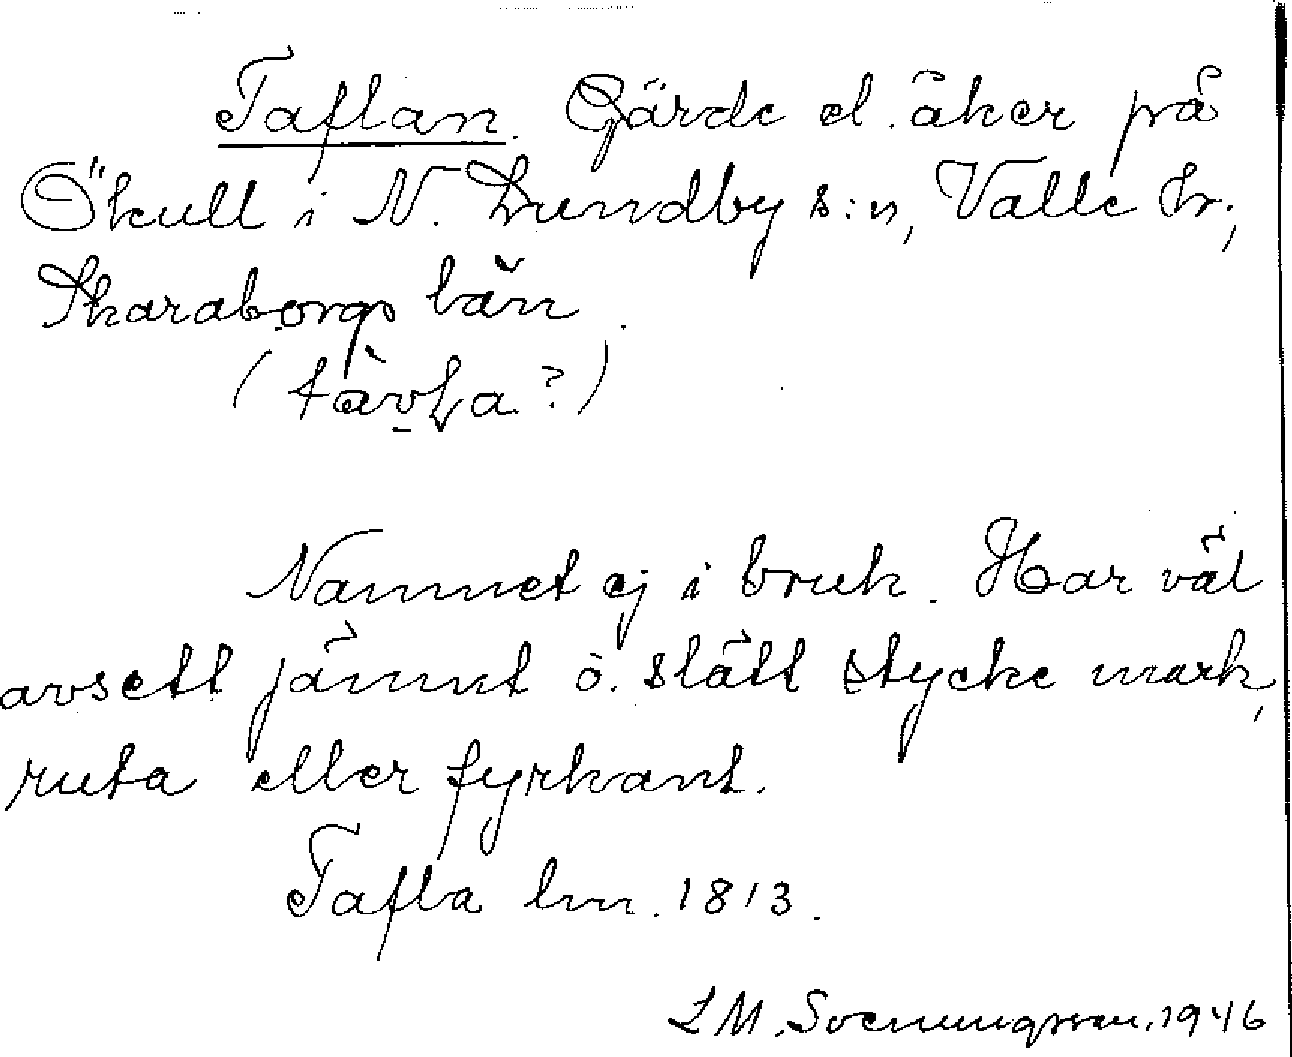 Taflan. Gärde el. åker på
Ökull i N. Lundby s:n, Valle hr.,
Skaraborgs län.
(tàvLa?)
Namnet ej i bruk. Har väl
avsett jämnt o. slätt stycke mark,
ruta eller fyrkant.
Tafla lm. 1813.
L M. Svenungsson. 1946